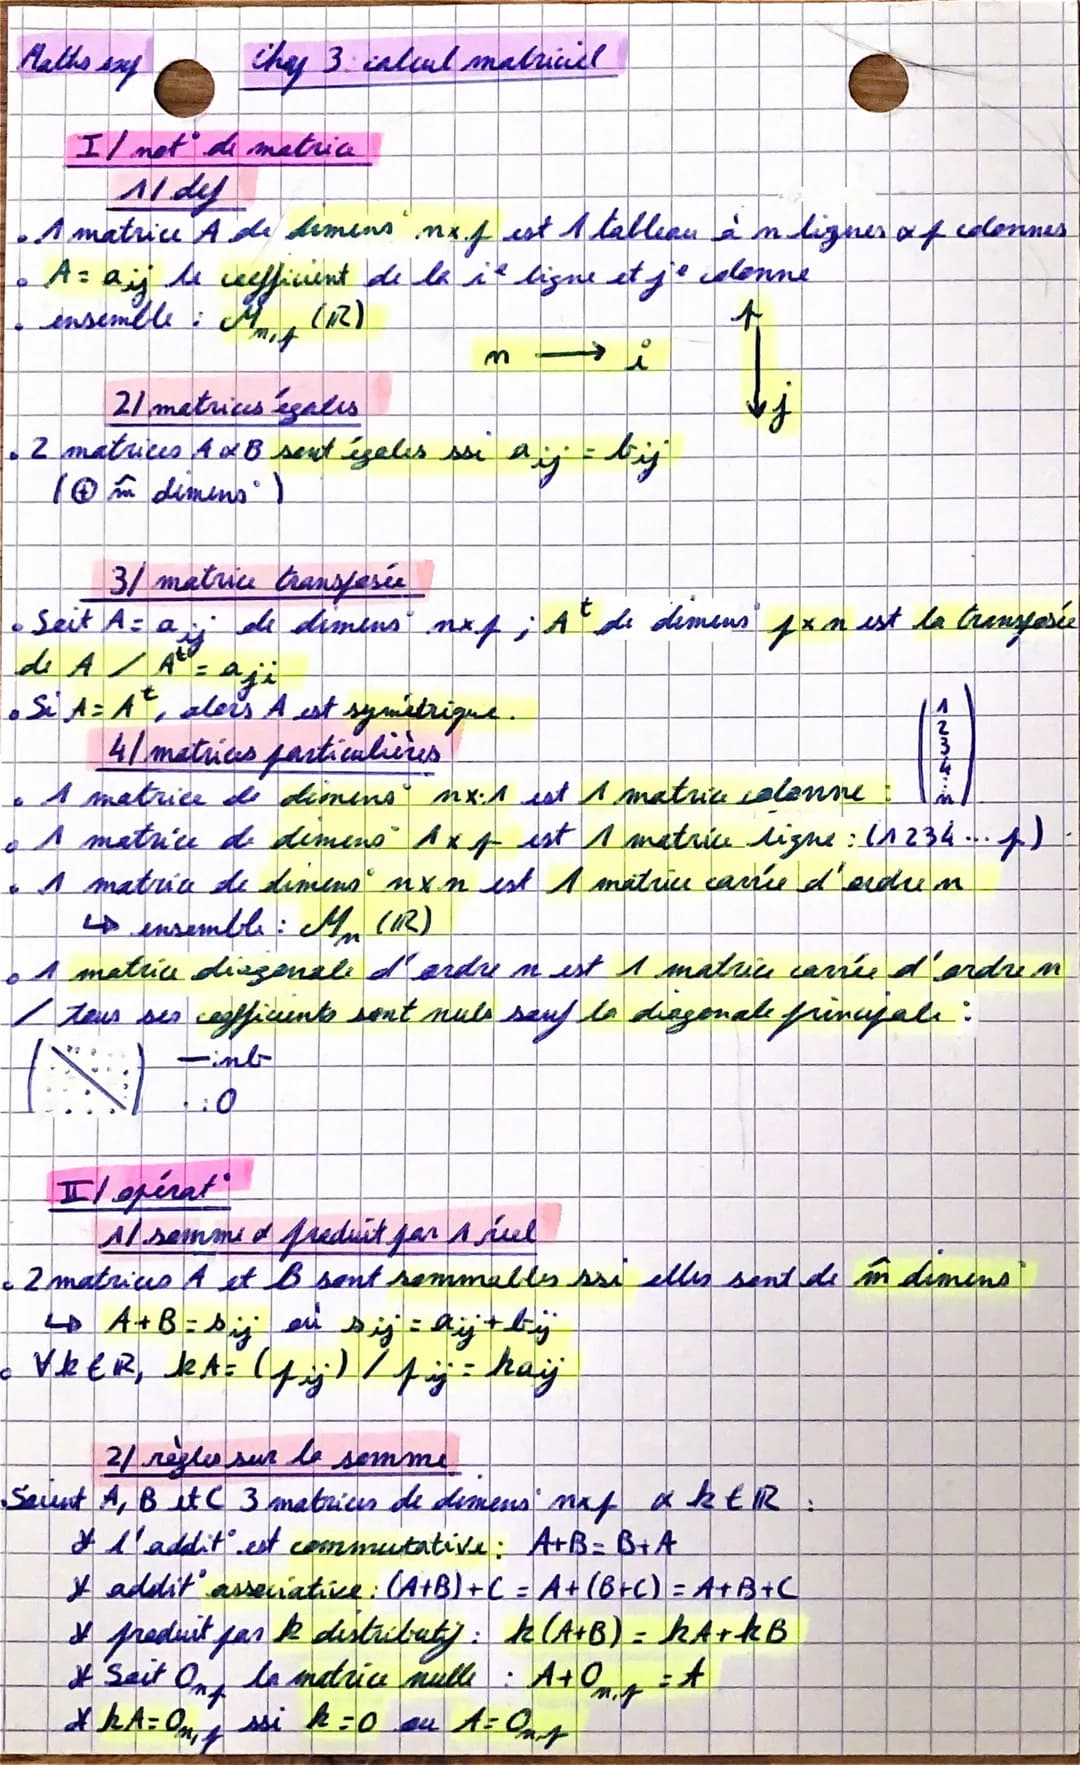 Maths exp Chap 3: calcul matriciel
I/ not° de matrice
1/ def
• 1 matrice A de dimens° n×p est 1 tableau à n lignes & p colonnes
• A = aij le coefficient de la ie ligne et je colonne
• ensemble : Mn,p (ℝ)
n → i
p ↓ j
2/ matrices égales
• 2 matrices A & B sont égales ssi aij = bij
(⊕ m̂ dimens°)
3/ matrice transposée
• Soit A = aij de dimens° n×p ; Aᵗ de dimens° p×n est la transposée
de A / Aᵗ = aji
• Si A = Aᵗ, alors A est symétrique.
4/ matrices particulières
• 1 matrice de dimens° n×1 est 1 matrice colonne : (1 2 3 4 ⋮ n)
• 1 matrice de dimens° 1×p est 1 matrice ligne : (1 2 3 4 ... p)
• 1 matrice de dimens° n×n est 1 matrice carrée d'ordre n
↳ ensemble : Mn (ℝ)
• 1 matrice diagonale d'ordre n est 1 matrice carrée d'ordre n
/ tous ses coefficients sont nuls sauf la diagonale principale :
— : nb
· : 0
II/ opérat°
1/ somme & produit par 1 réel
• 2 matrices A et B sont sommables ssi elles sont de m̂ dimens°
↳ A+B = sij où sij = aij + bij
• ∀k ∈ ℝ, kA = (pij) / pij = kaij
2/ règles sur la somme
• Soient A, B et C 3 matrices de dimens° n×p & k ∈ ℝ :
* l'addit° est commutative : A+B = B+A
* addit° associative : (A+B)+C = A+(B+C) = A+B+C
* produit par k distributif : k(A+B) = kA+kB
* Soit On,p la matrice nulle : A+On,p = A
* kA = On,p ssi k = 0 ou A = On,p